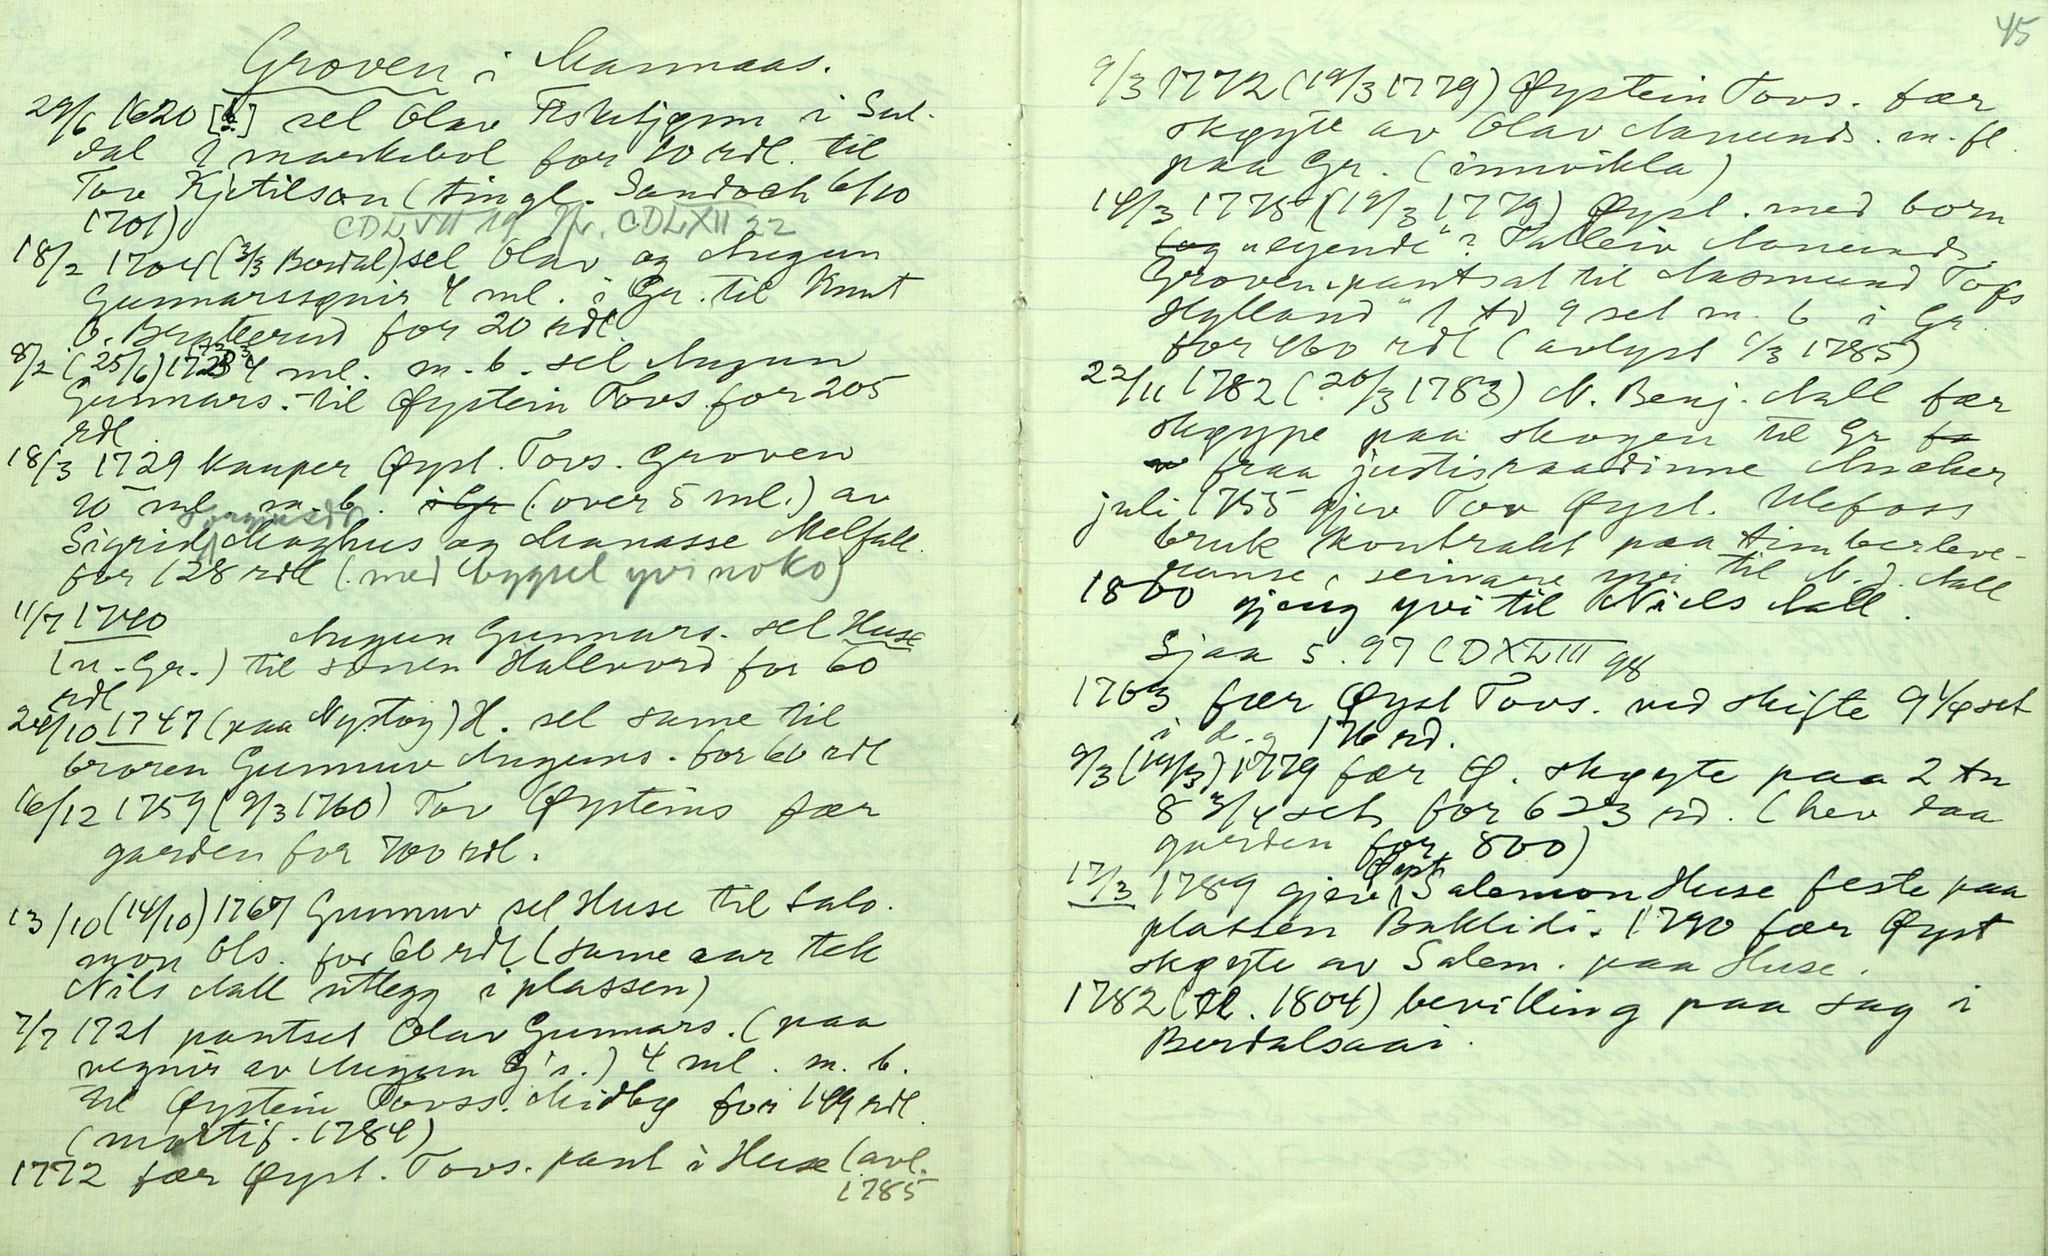 Groven i Marmaas.
29/6 1620 [!] sel Olav Fisketjønn i Sul-
dal 2 markebol for 10 rdl. til
Tov Kjetilson (tingl. Sandock 6/10
1701)
CDLVII 19 CDLXII 22
18/2 1704 (3/3 Berdal) sel Olav og Augun
Gunnarssønir 4 ml. i Gr. til Knut
O. Bratterud for 20 rdl.
8/2 (25/6) 1723 4 ml. m. b. sel Augun
Gunnars. til Øystein Tovs for 205
rdl.
18/3 1729 kauper Øyst. Tovs. Groven
10 ml m. b. i Gr (over 5 ml.) av
Sigrid Moghus og Manasse Melfall.
for 128 rdl (med bygsel yvi noko)
11/7 1740 Augun Gunnars. sel Huse
(u. Gr.) til sonen Hallvord for 60
rdl
24/10 1747 (paa Nystog) H. sel same til
broren Gunnuv Auguns. for 60 rdl
16/12 1759 (9/3 1760) Tov Øysteins fær
garden for 700 rdl.
13/10 (14/10) 1767 Gunnuv sel Huse til Salo-
mon Ols. for 60 rdl (same aar tek
Nils Aall utlegg i plassen)
7/7 1721 pantset Olav Gunnars. (paa
vegnir av Augun G's.) 4 ml. m. b.
til Øystein Tovss. Midbø for 149 rdl.
(mortif. 1784)
1772 fær Øyst. Tovs. pant i Huse (avl.
1785
45
9/3 1772 (19/3 1779) Øystein Tovs. fær
skøyte av Olav Aanunds. m. fl.
paa Gr. (innvikla)
14/3 1775 (19/3 1779) Øyst. med born
og "egende"? Talleiv Aanunds.
Groven pantsat til Aasmund Tofs
Hylland "1 td 9 set m. b i Gr.
for 460 rdl (avlyst 6/3 1785)
22/11 1782 (20/3 1783) N. Benj. Aall fær
skøype paa skogen til Gr fa
fraa justisraadinne Ancker
juli 1755 gjev Tov Øyst. Ulefoss
bruk kontrakt paa timberleve-
ranse, seinare yvi til N. J. Aall
1800 gjeng yvi til Niels Aall.
Sjaa s. 97 CDXLIII 98
1763 fær Øyst Tovs. ved skifte 9 1/4 set
i d. g 176 rd.
9/3 (19/3) 1779 fær Ø. skøyte paa 2 tn
8 3/4 set, for 623 rd. (hev daa
garden for 800)
17/3 1789 gjev Øyst Salemon Huse feste paa
plassen Baklidi. 1790 fær Øyst
skøyte av Salem. paa Huse.
1782 (tl. 1804) bevilling paa sag i
Berdalsaai.